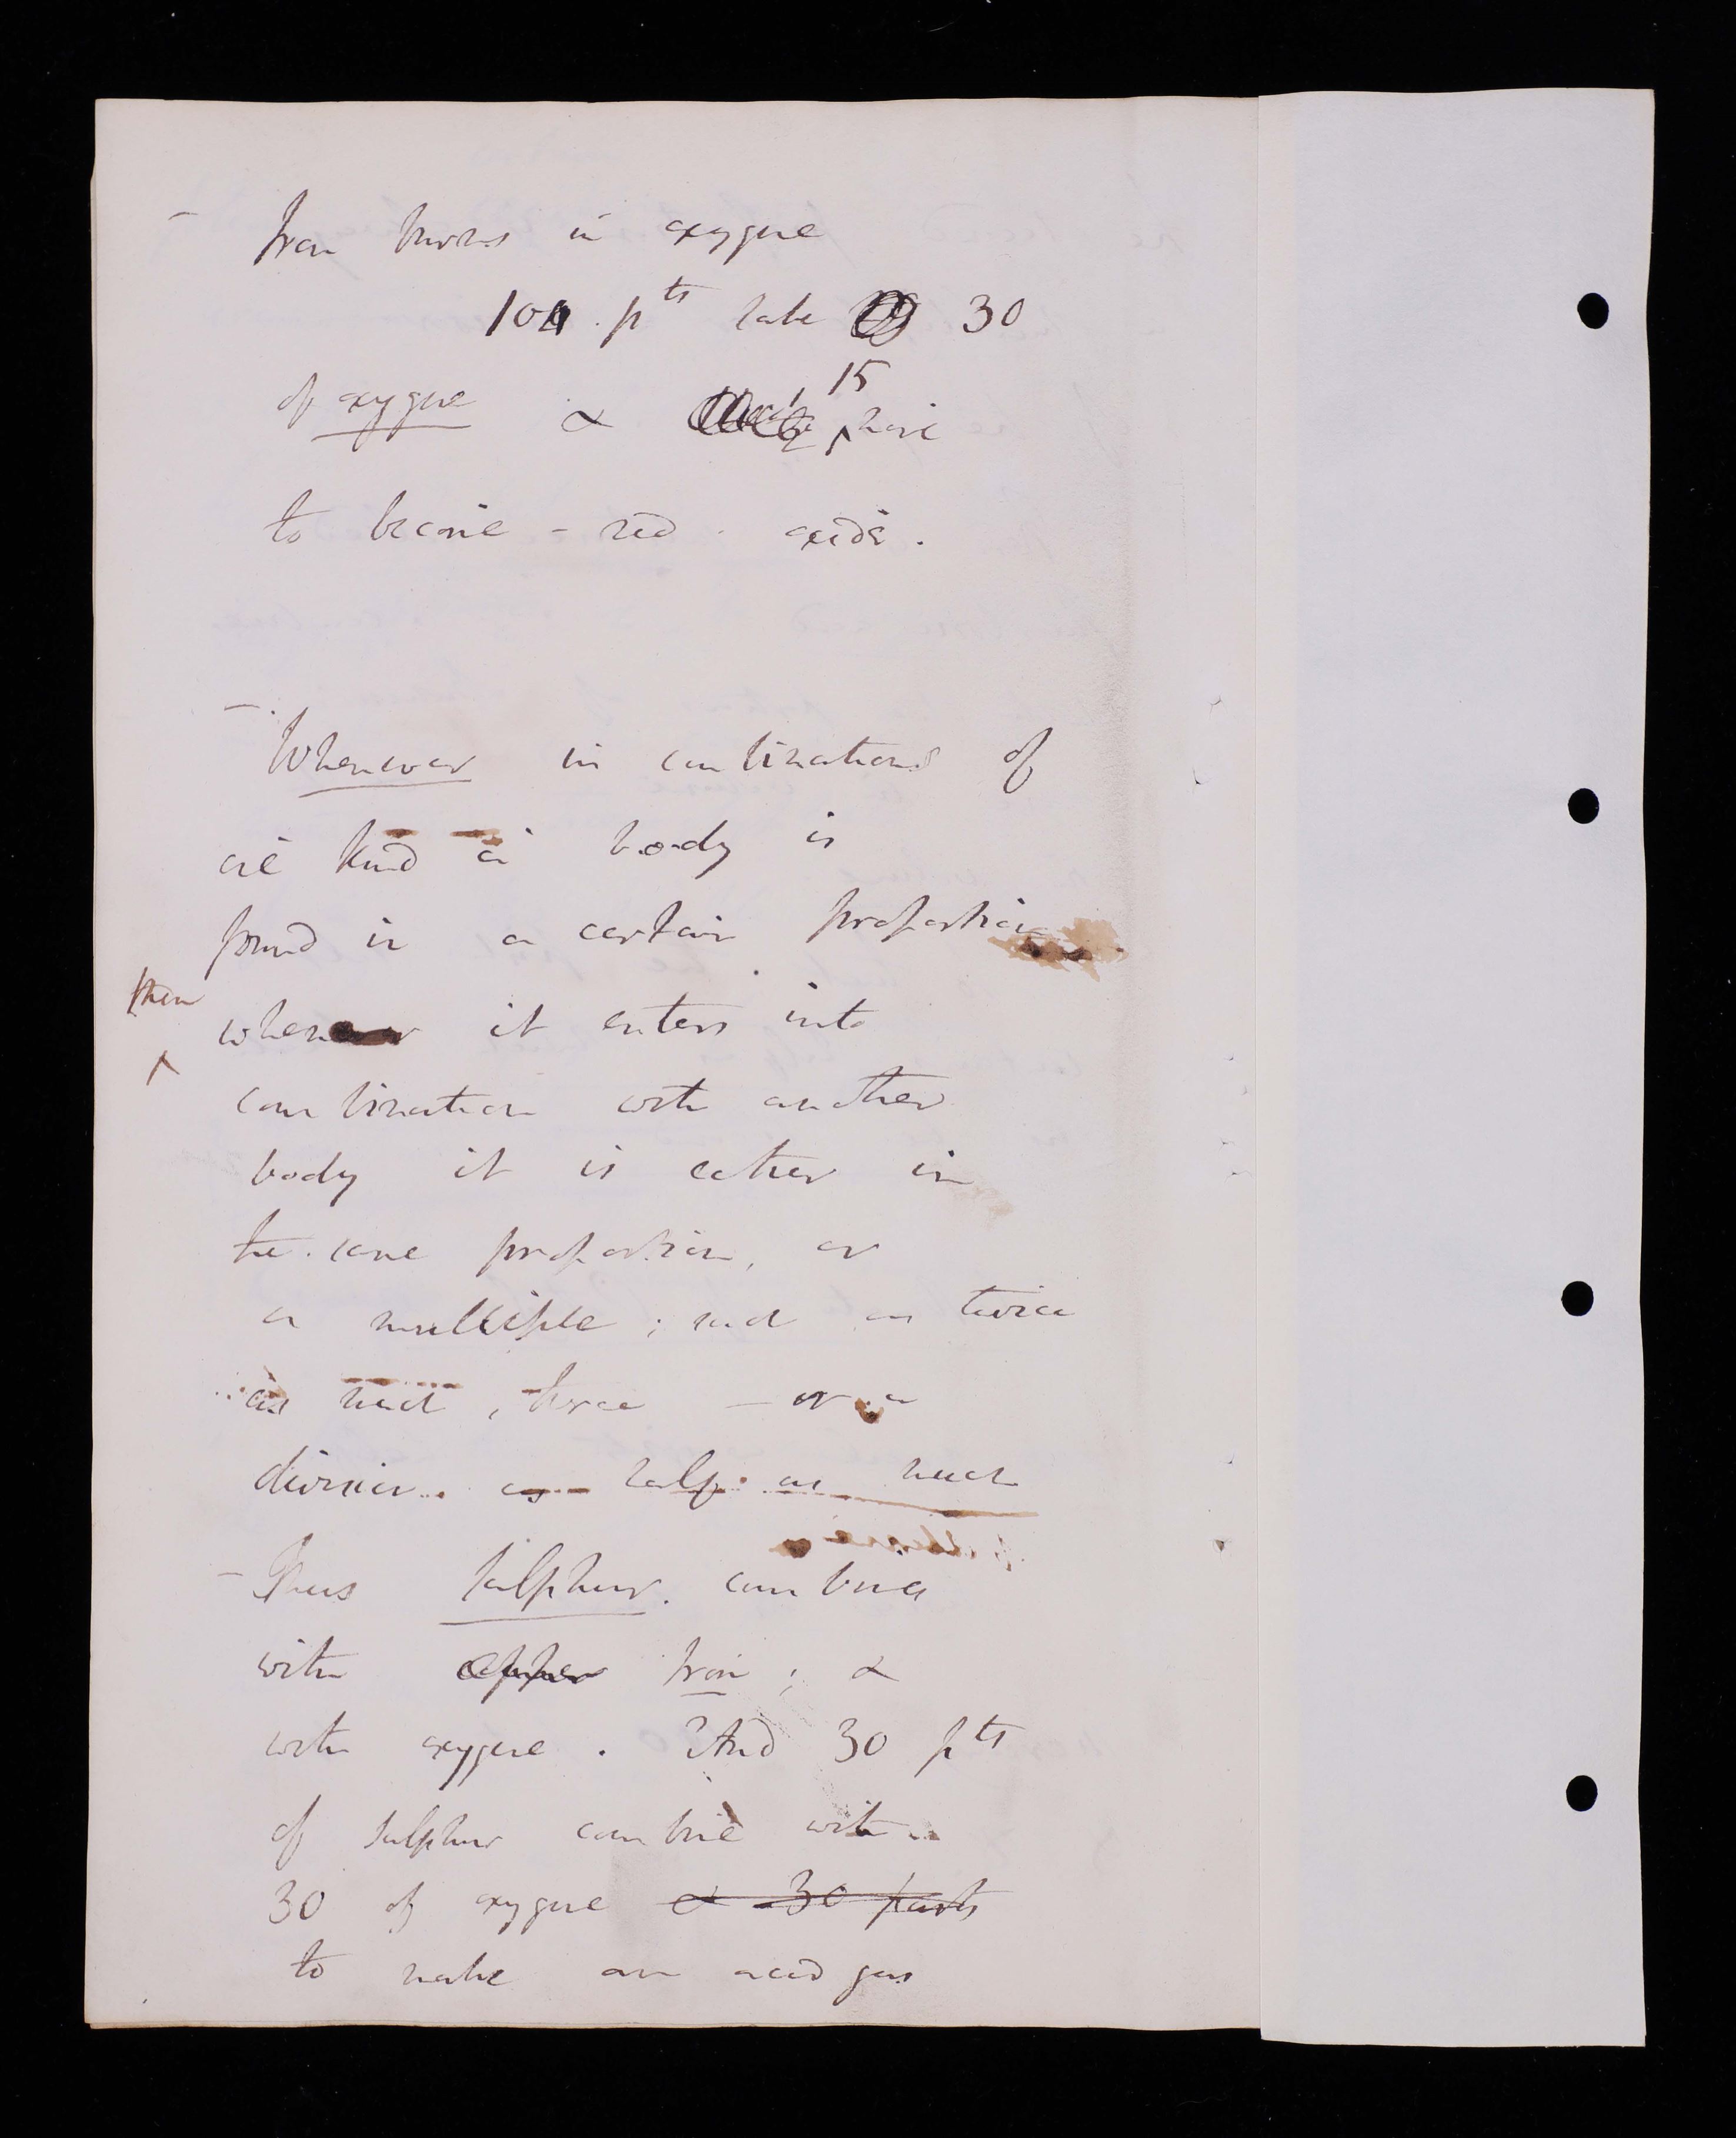 - Iron burns in oxygene
100 . pts take 30
of oxygene & 15 more
to become - red - oxide .
- Whenever in combinations of
one kind a body is
found in a certain proportion
then
when it enters into
combination with another
body it is either in
the same proportion, or
a multiple ; such as twice
as much , thrice - or a
division . as half as much
- Thus sulphur . combines
with copper Iron ; &
with oxygene . And 30 pts
of sulphur combine with
30 of oxygene & 30 parts
to make an acid gas